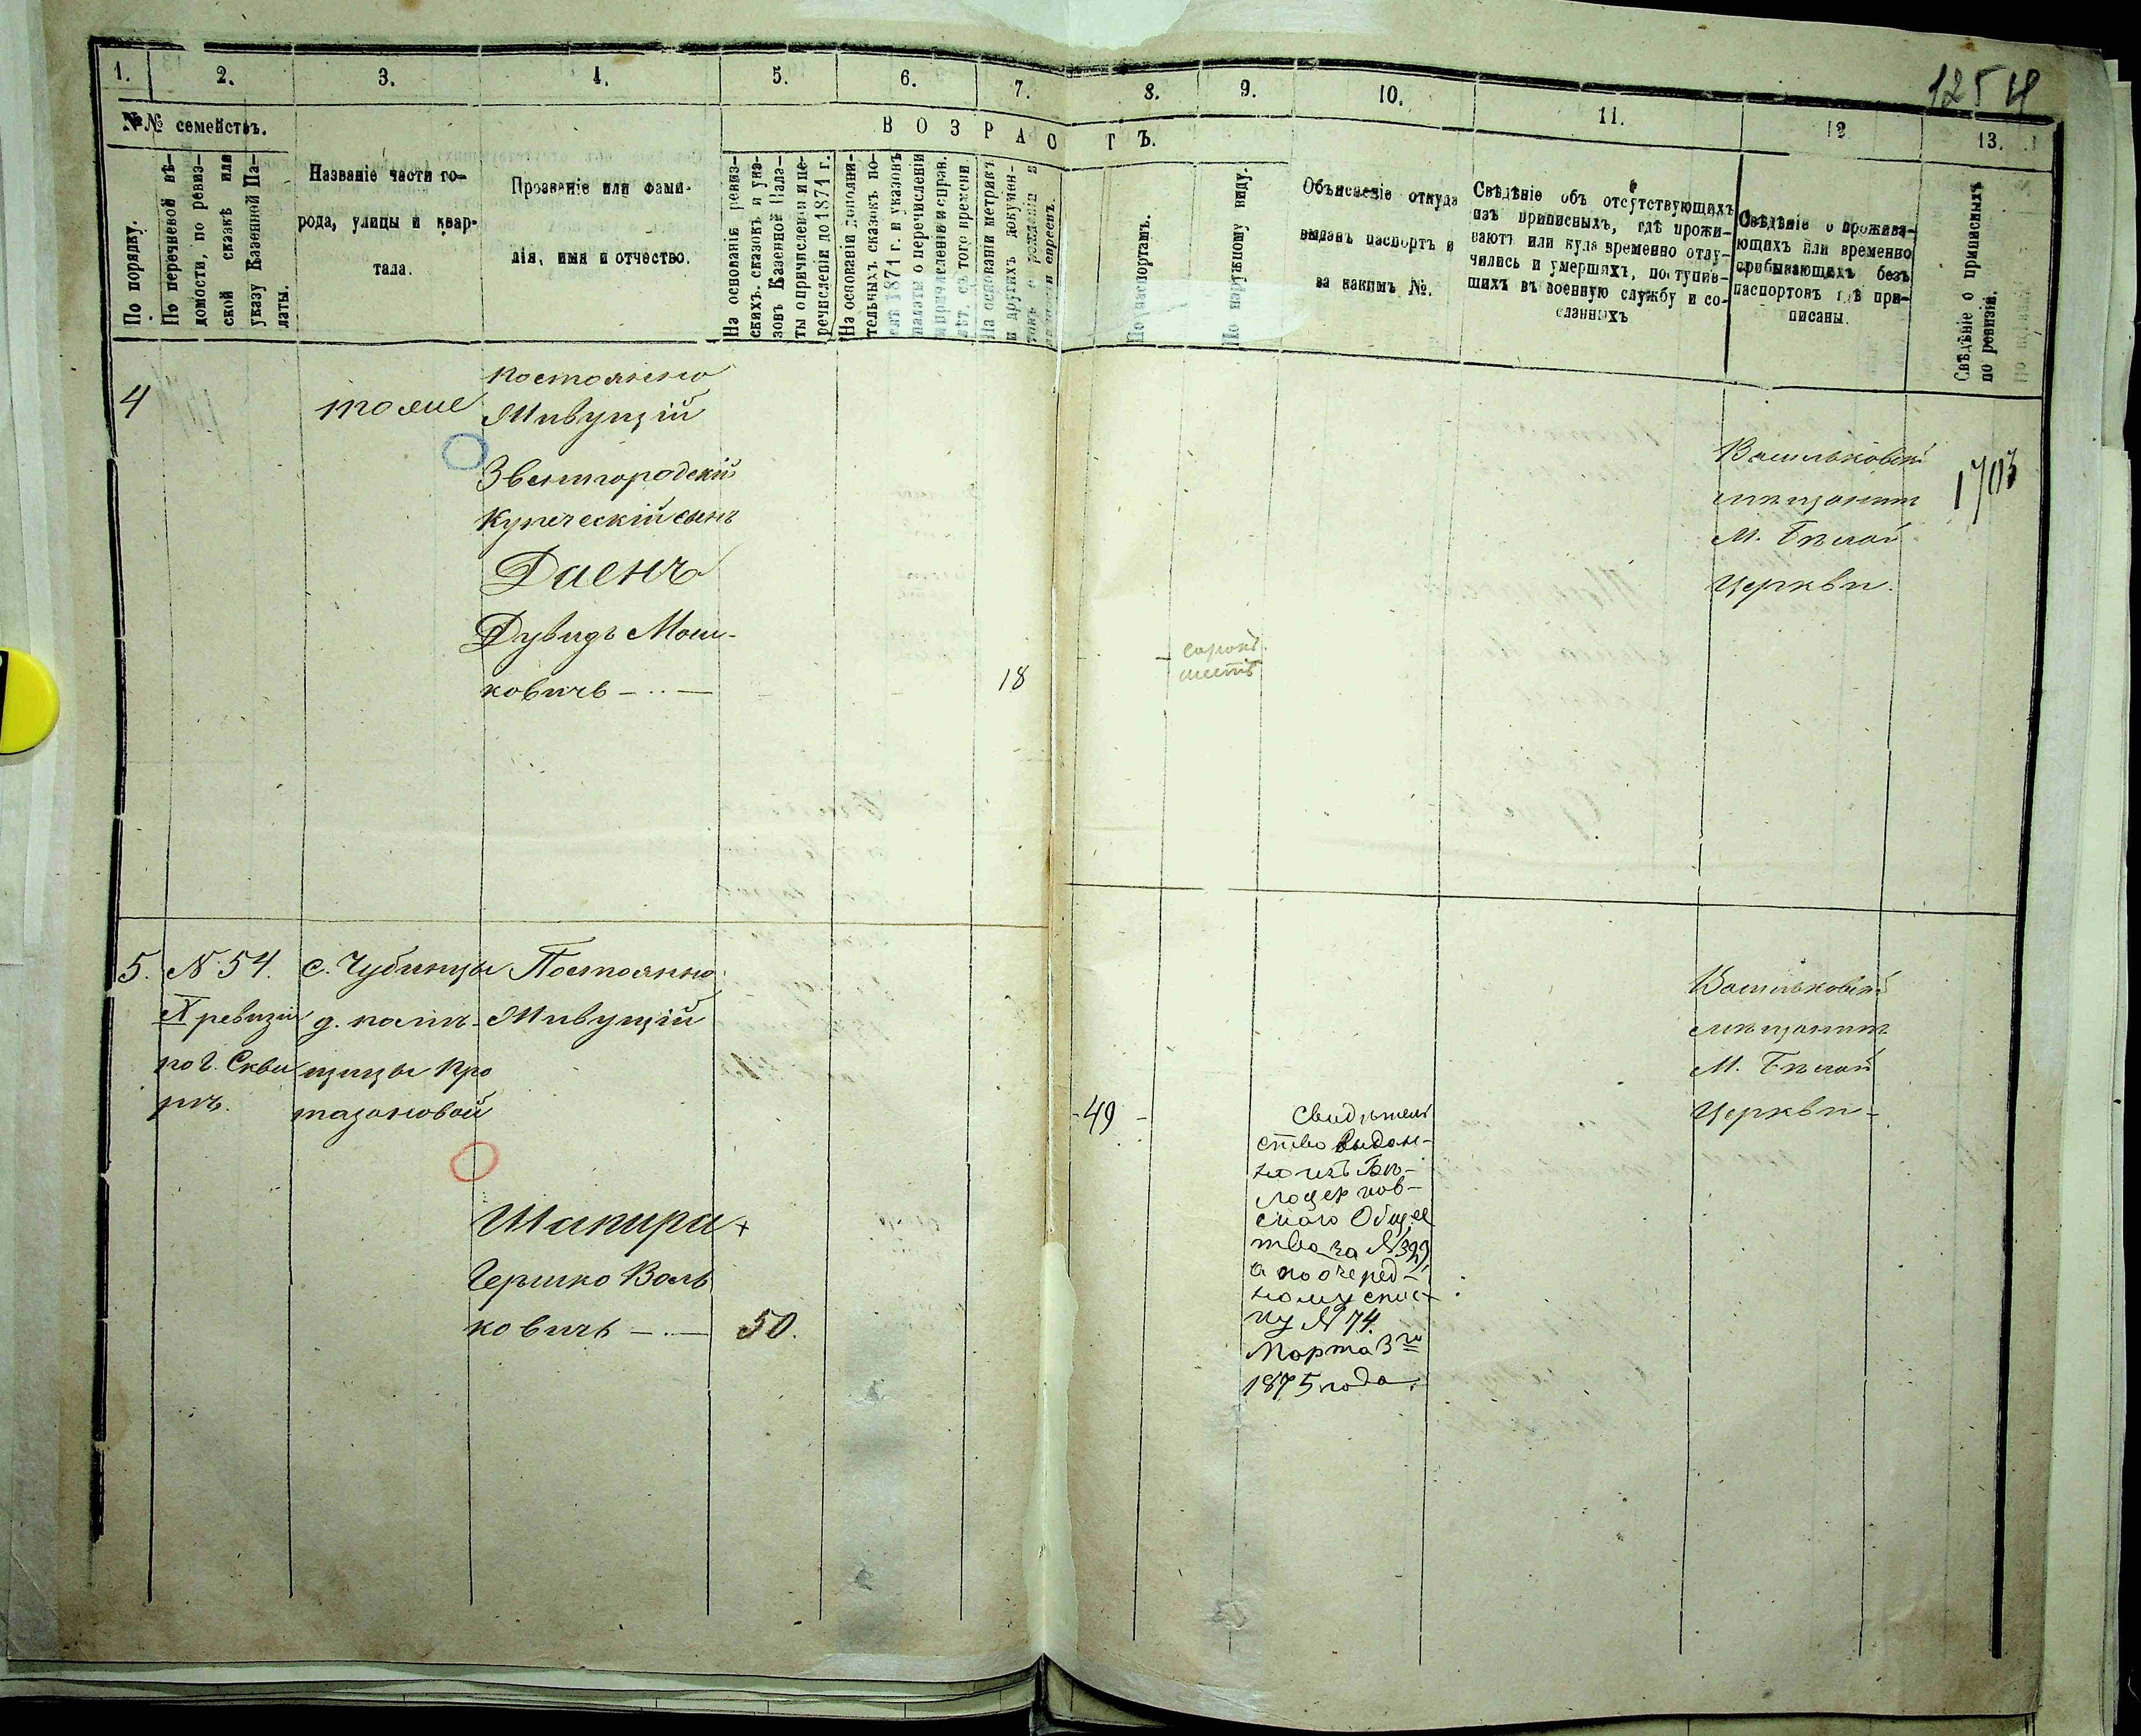 1254
1.
2.
3.
4.
5.
6.
7.
8.
9.
10.
11.
12
13.
№№ семействъ.
ВОЗРАСТЪ.
По порядку.
По перечневой вѣ-
домости, по ревиз-
ской сказкѣ или
указу Казенной Па-
латы.
Названіе части го-
рода, улицы и квар-
тала.
Прозваніе или фами-
лія, имя и отчество.
На основаніи ревиз-
скихъ сказокъ и ука-
зовъ Казенной Пала-
ты о причисленіи и пе-
речисленіи до 1871 г.
На основаніи дополни-
тельныхъ сказокъ по-
слѣ 1871 г. и указовъ
палаты о перечисленіи
и причисленіи и справ.
лѣт. съ того времени.
На основаніи метрикъ
и другихъ докумен-
товъ о рожденіи и
По паспортамъ.
По наружному виду.
Объясненіе откуда
выданъ паспортъ и
за какимъ №.
Свѣдѣніе объ отсутствующихъ
изъ приписныхъ, гдѣ прожи-
ваютъ или куда временно отлу-
чились и умершихъ, поступив-
шихъ въ военную службу и со-
сланныхъ
Свѣдѣніе о прожива-
ющихъ или временно
пребывающихъ безъ
паспортовъ гдѣ при-
писаны.
Свѣдѣніе о приписныхъ
по ревизіи.
4
тоже
постоянно
Живущій
Звенигородскій
Купеческій сынъ
Даенъ
Дувидъ Мош-
ковичъ
18
сорокъ
шесть
Васильковскі
мѣщанинъ
М. Бѣлой
Церкви.
1703
5.
N 54.
X ревизіи
по г. Скви
рѣ.
с. Чубинцы
д. помѣ-
щицы Про
тазановой
Постоянно
Живущій
Шапира +
Гершко Воль
ковичъ
50.
-49-
Свидѣтель
ство выдан-
но изъ Бѣ-
лоцерков-
скаго Общес
тва за N 399
а по очеред-
ному спис-
ку N 74.
Марта 3го
1875 года.
Васильковскі
мѣщанинъ
М. Бѣлой
Церкви-